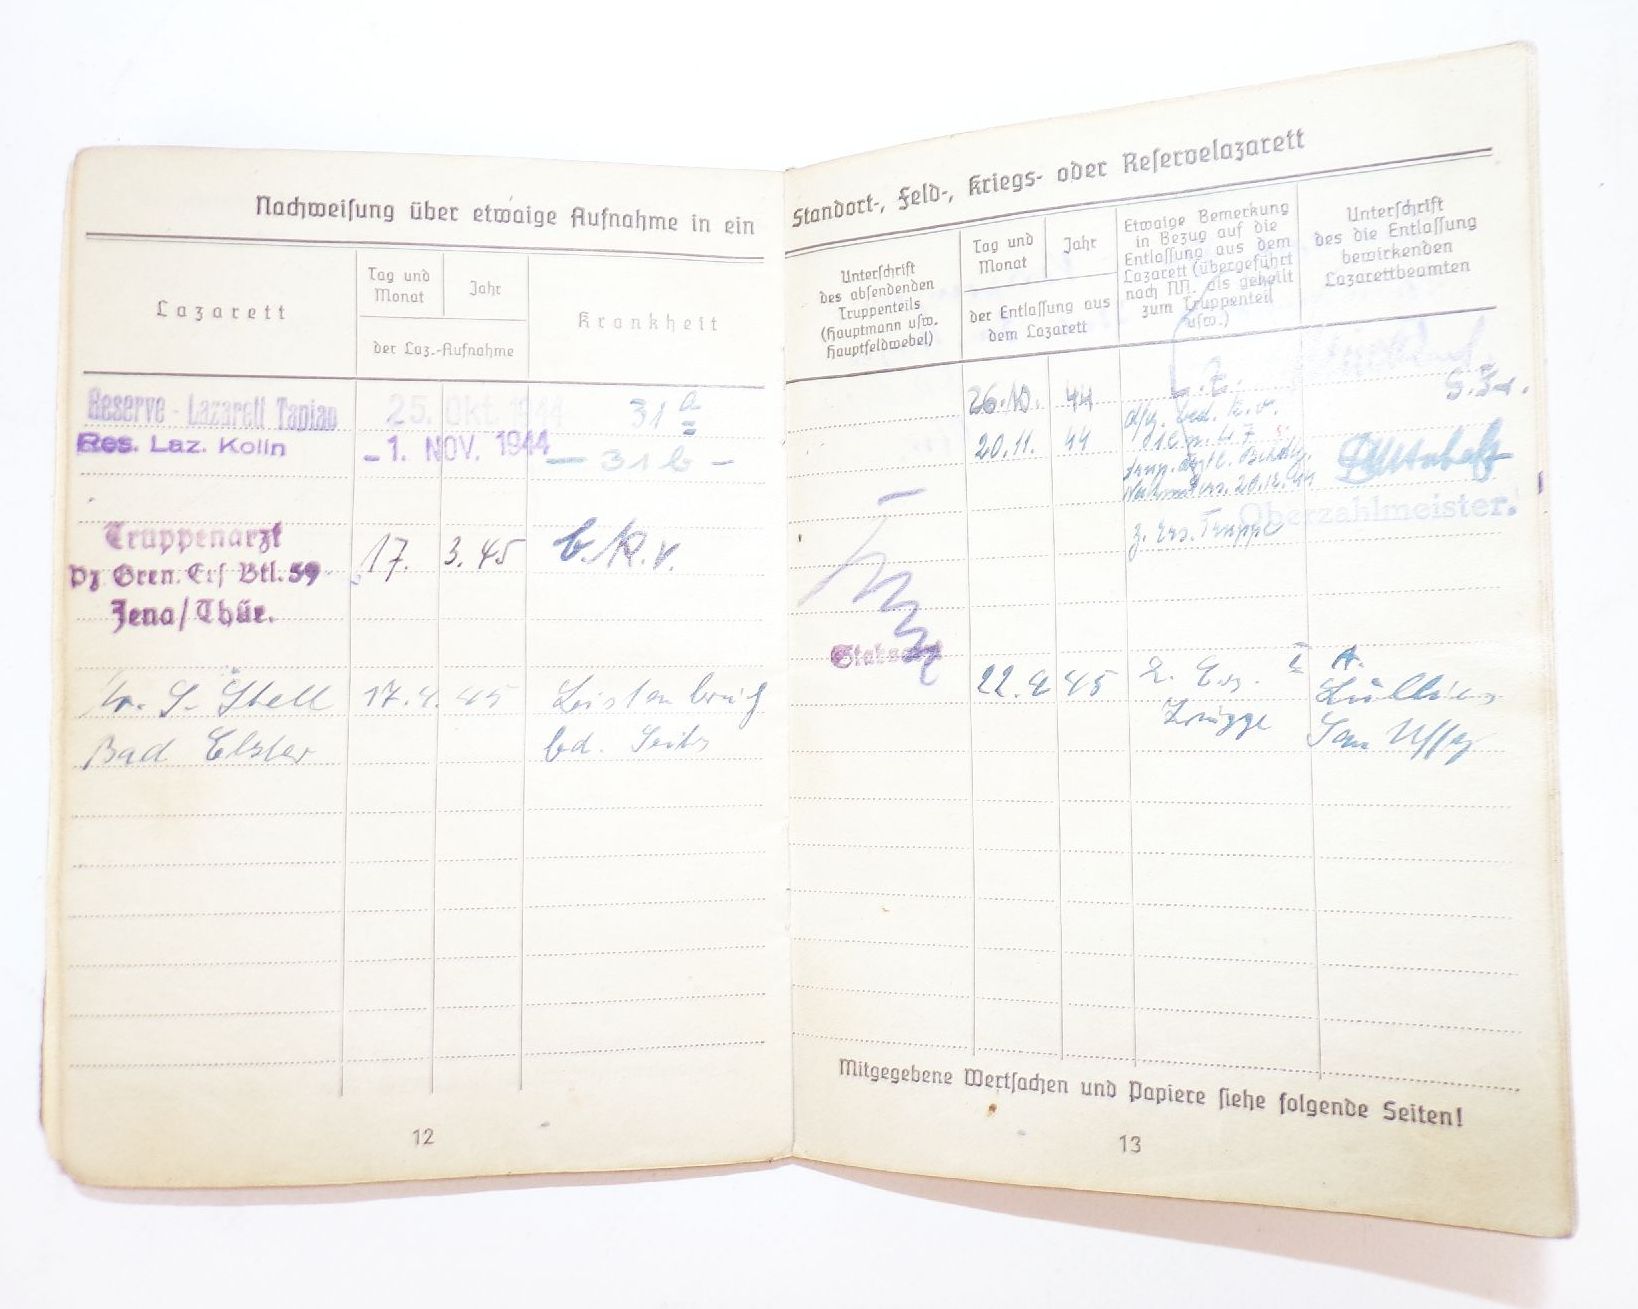 Nachweisung über etwaige Aufnahme in ein
Lazarett
Tag und
Monat
Jahr
der Laz.-Aufnahme
Krankheit
Reserve - Lazarett Tapiau
25. Okt. 1944
31 a
Res. Laz. Kolin
-1. NOV. 1944
— 31 b —
Truppenarzt
Pz. Gren. Ers. Btl. 59
Jena/Thür.
17.
3. 45
b. k. v.
Kr. S. Stell
17. 4. 45
Leistenbruch
Bad Elster
bd. Seits
12
Standort-, Feld-, Kriegs- oder Reservelazarett
Unterschrift
des absendenden
Truppenteils
(Hauptmann usw.
Hauptfeldwebel)
Tag und
Monat
Jahr
der Entlassung aus
dem Lazarett
Etwaige Bemerkung
in Bezug auf die
Entlassung aus dem
Lazarett (übergeführt
nach NN. als geheilt
zum Truppenteil
usw.)
Unterschrift
des die Entlassung
bewirkenden
Lazarettbeamten
26.10. 44
20.11. 44
20.12.44
Oberzahlmeister.
z. Ers. Truppe
Stabsarzt
22. 4 45
z. Ers.
Truppe
San Uffz
Mitgegebene Wertsachen und Papiere siehe folgende Seiten!
13